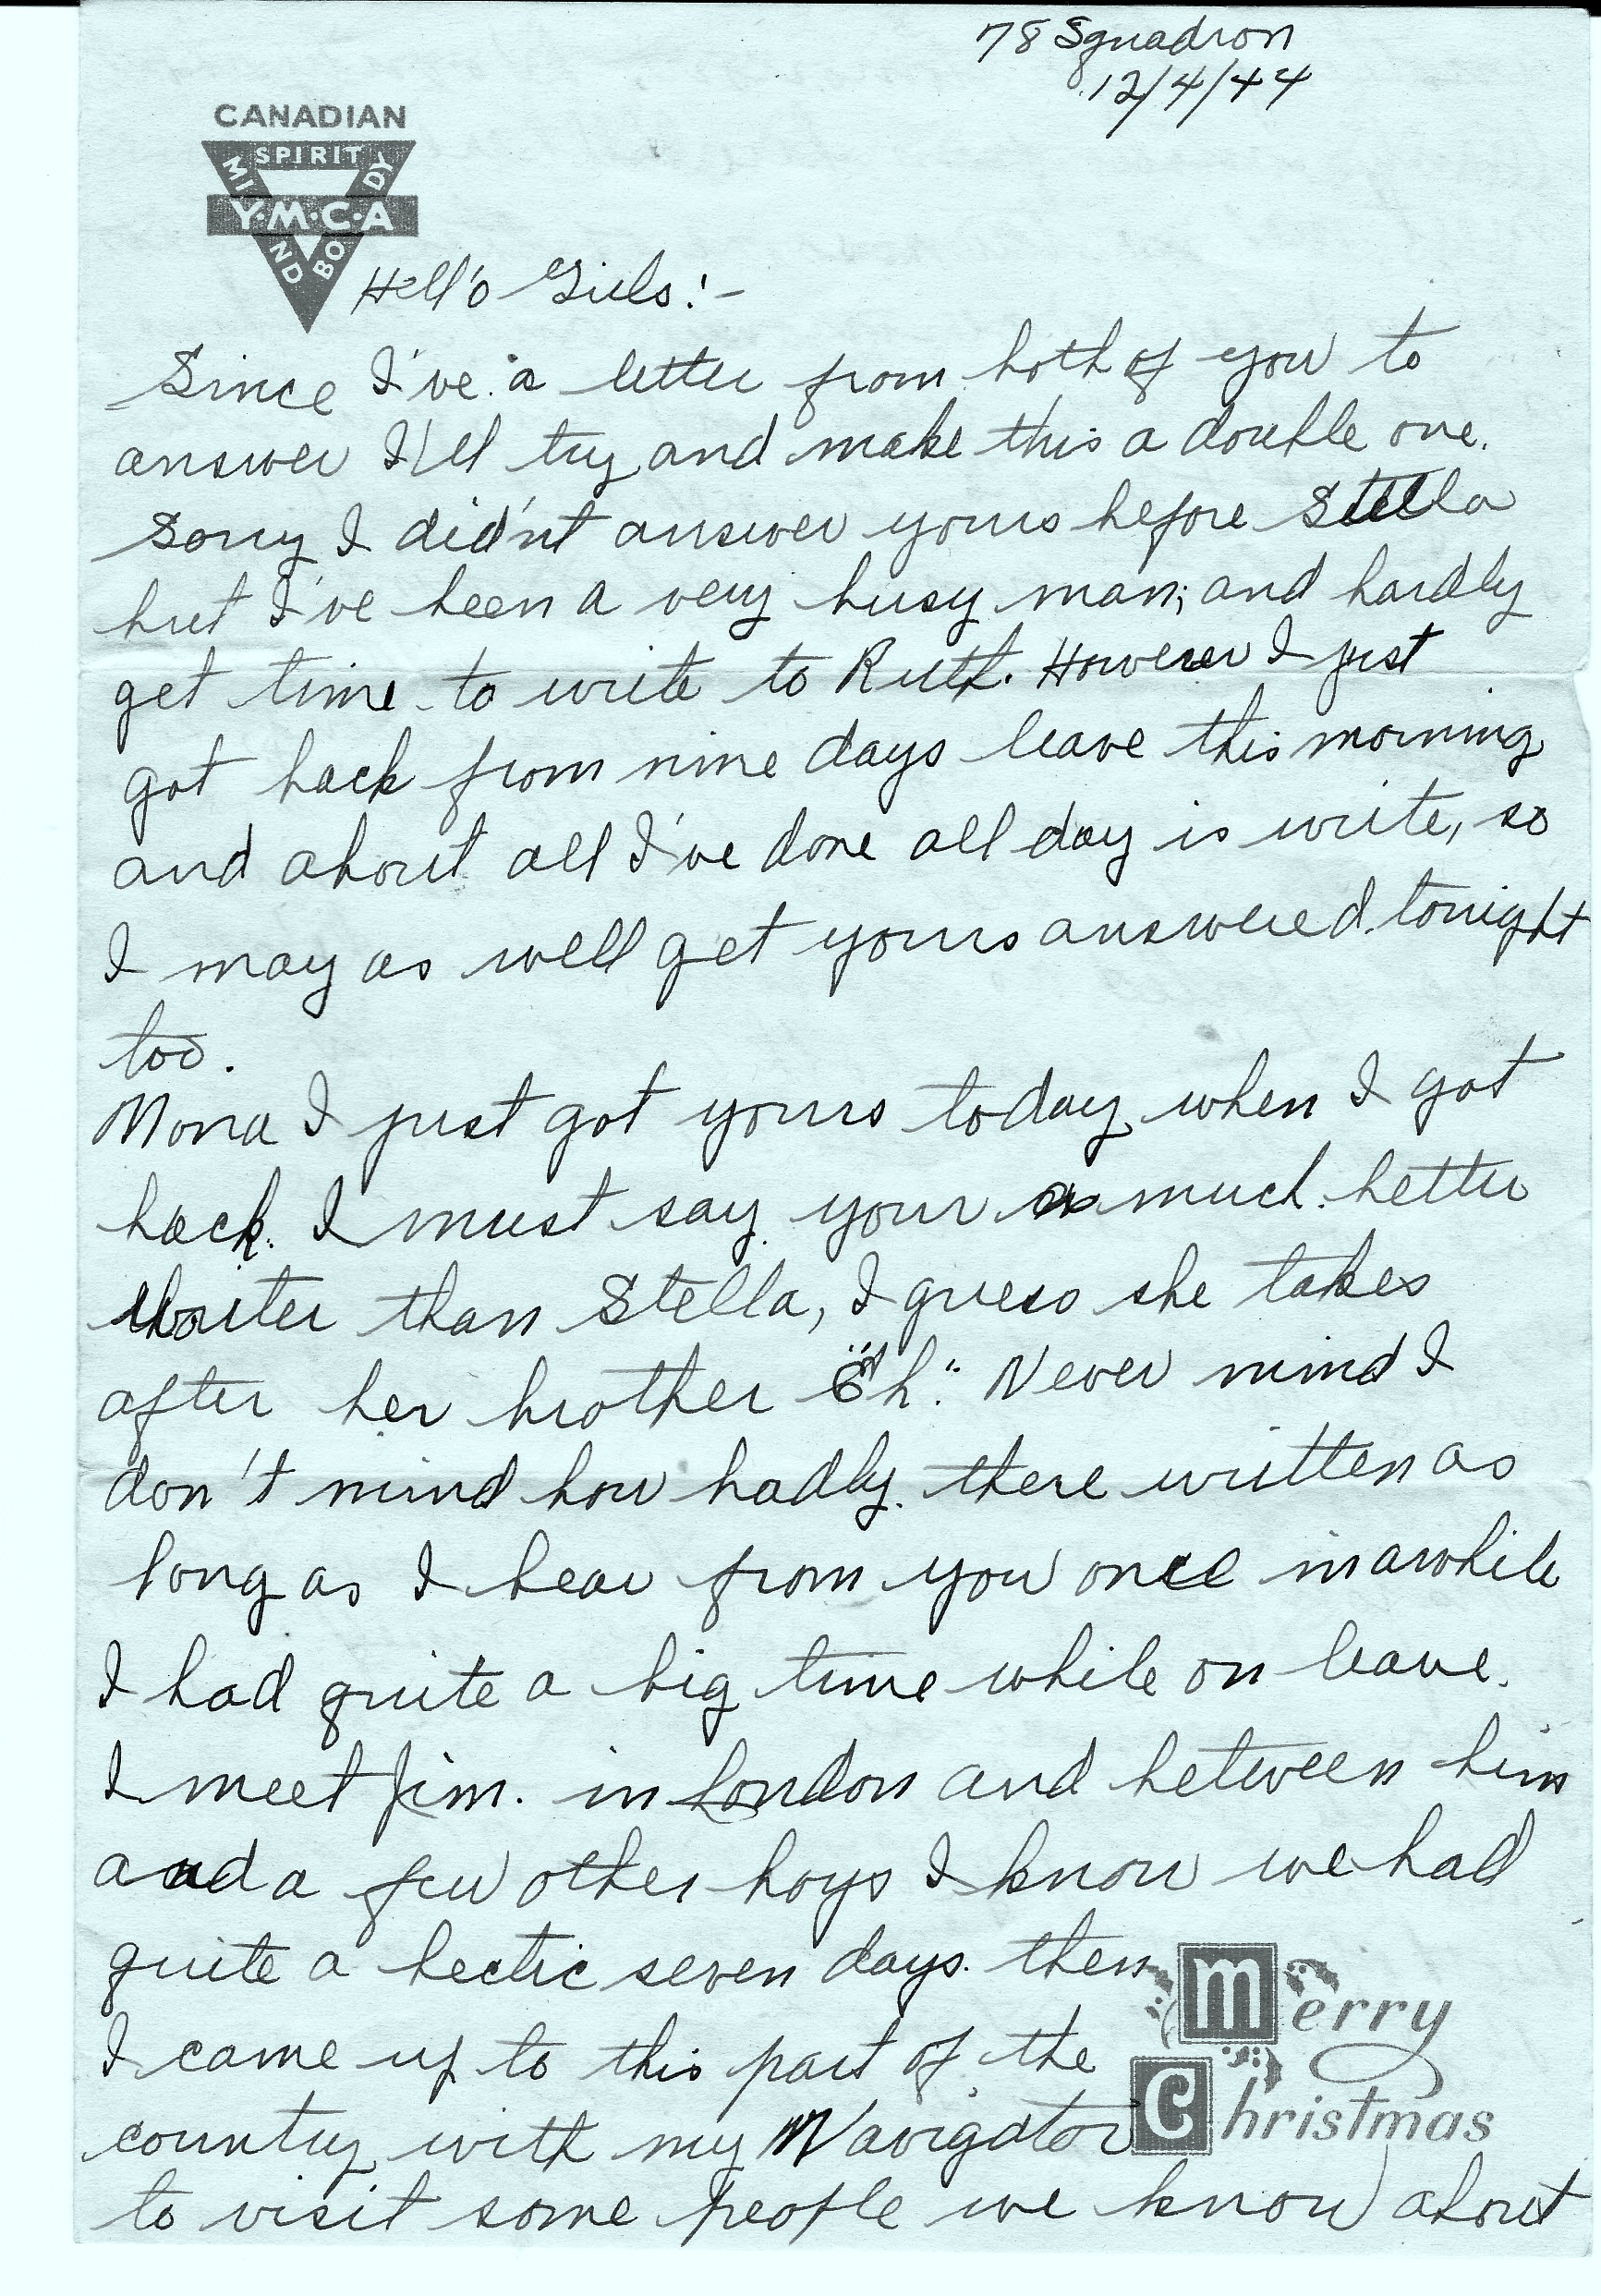 78 Squadron
12/4/44
CANADIAN
SPIRIT
MIND
BODY
Y·M·C·A
Hell'o Girls:-
Since I've a letter from both of you to
answer I'll try and make this a double one.
Sorry I did'nt answer yours before Stella
but I've been a very busy man; and hardly
get time to write to Ruth. However I just
got back from nine days leave this morning
and about all I've done all day is write, so
I may as well get yours answered tonight
too.
Mona I just got yours today when I got
back. I must say your a much better
writer than Stella, I guess she takes
after her brother "Eh". Never mind I
don't mind how badly there written as
long as I hear from you once in awhile
I had quite a big time while on leave.
I meet Jim. in London and between him
and a few other boys I know we had
quite a hectic seven days. then
I came up to this part of the
country with my Navigator
to visit some people we know about
Merry
Christmas